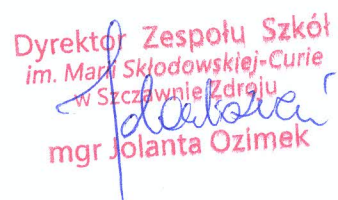 Dyrektor Zespołu Szkół
im. Marii Skłodowskiej-Curie
w Szczawnie Zdroju
mgr Jolanta Ozimek